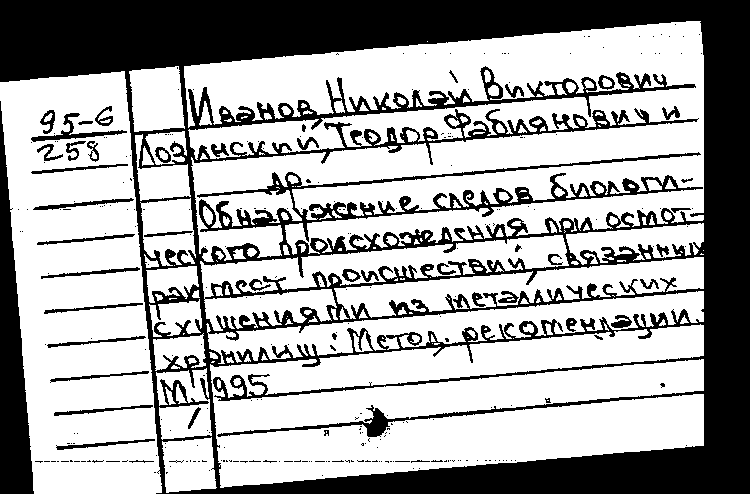 95-6
258
Иванов, Николай Викторович
Лозинский, Теодор Фабиянович и
др.
Обнаружение следов биологи-
ческого происхождения при осмот-
рах мест происшествий, связанных
с хищениями из металлических
хранилищ: Метод. рекомендации.
М., 1995